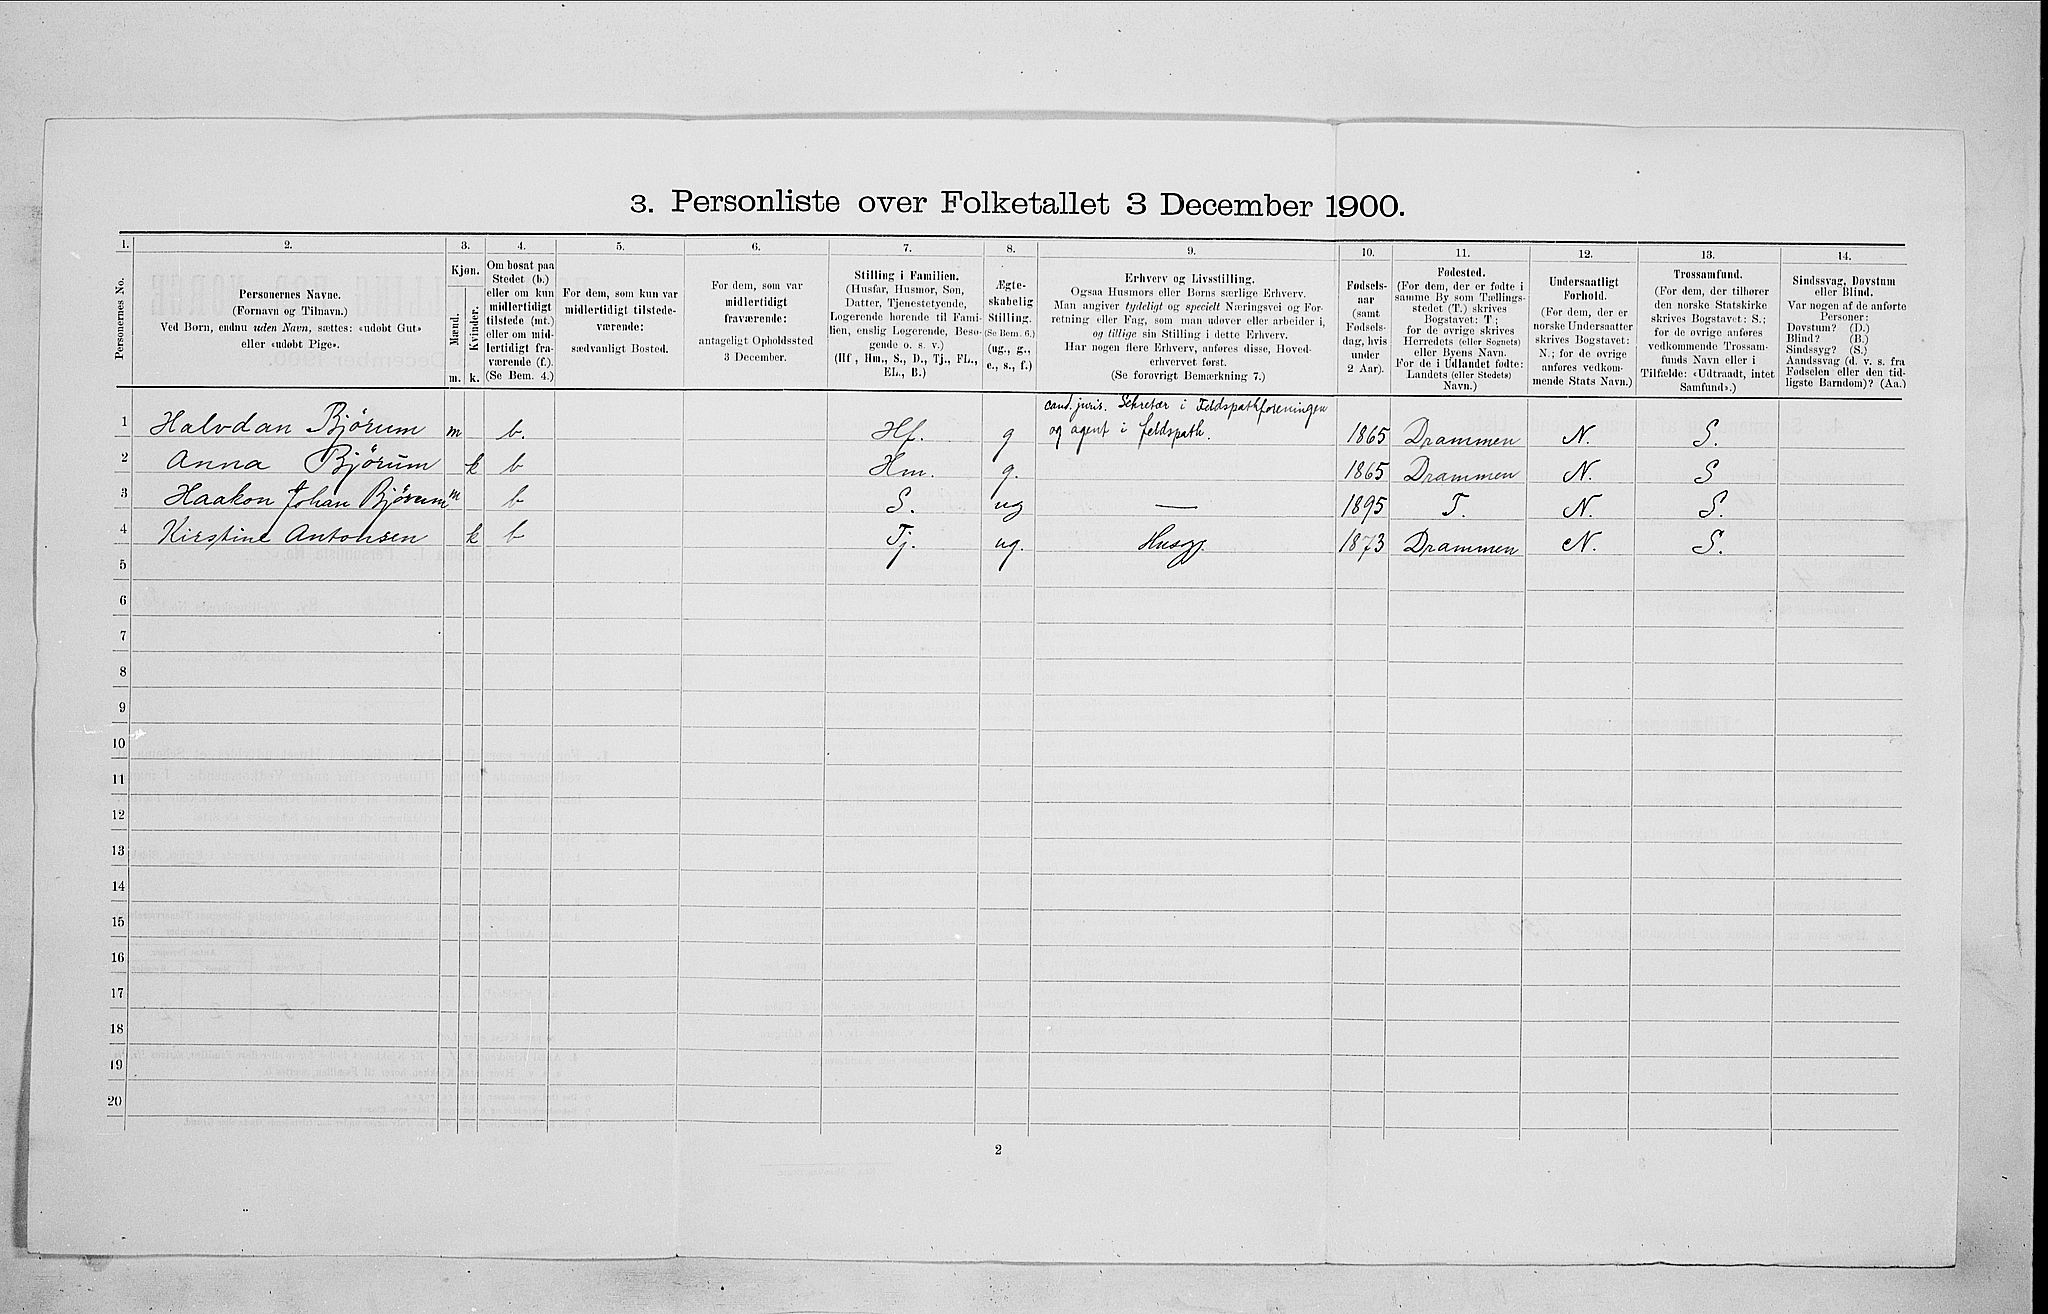 3. Personliste over Folketallet 3 December 1900.
1. 2. 3. 4. 5. 6. 7. 8. 9. 10. 11. 12. 13. 14.
Personernes No.
Personernes Navne.
(Fornavn og Tilnavn.)
Ved Børn, endnu uden Navn, sættes: «udøbt Gut»
eller «udøbt Pige».
Kjøn.
Mænd.
Kvinder.
m. k.
Om bosat paa
Stedet (b.)
eller om kun
midlertidigt
tilstede (mt.)
eller om mid-
lertidigt fra-
værende (f.).
(Se Bem. 4.)
For dem, som kun var
midlertidigt tilstede-
værende:
sædvanligt Bosted.
For dem, som var
midlertidigt
fraværende:
antageligt Opholdssted
3 December.
Stilling i Familien.
(Husfar, Husmor, Søn,
Datter, Tjenestetyende,
Logerende hørende til Fami-
lien, enslig Logerende, Besø-
gende o. s. v.)
(Hf., Hm., S., D., Tj., FL.,
EL., B.)
Ægte-
skabelig
Stilling.
(Se Bem. 6.)
(ug., g.,
e., s., f.)
Erhverv og Livsstilling.
Ogsaa Husmors eller Børns særlige Erhverv.
Man angiver tydeligt og specielt Næringsvei og For-
retning eller Fag, som man udøver eller arbeider i,
og tillige sin Stilling i dette Erhverv.
Har nogen flere Erhverv, anføres disse, Hoved-
erhvervet først.
(Se forøvrigt Bemærkning 7.)
Fødsels-
aar
(samt
Fødsels-
dag, hvis
under
2 Aar).
Fødested.
(For dem, der er fødte i
samme By som Tællings-
stedet (T.) skrives
Bogstavet: T;
for de øvrige skrives
Herredets (eller Sognets)
eller Byens Navn.
For de i Udlandet fødte:
Landets (eller Stedets)
Navn.)
Undersaatligt
Forhold.
(For dem, der er
norske Undersaatter
skrives Bogstavet:
N.; for de øvrige
anføres vedkom-
mende Stats Navn.)
Trossamfund.
(For dem, der tilhører
den norske Statskirke
skrives Bogstavet: S.;
for de øvrige anføres
vedkommende Trossam-
funds Navn eller i
Tilfælde: «Udtraadt, intet
Samfund».)
Sindssvag, Døvstum
eller Blind.
Var nogen af de anførte
Personer:
Døvstum? (D.)
Blind? (B.)
Sindssyg? (S.)
Aandssvag (d. v. s. fra
Fødselen eller den tid-
ligste Barndom)? (Aa.)
cand. juris. Sekretær i Feldspathforeningen
1 Halvdan Bjørum m b. Hf. g og agent i feldspath. 1865 Drammen N. S.
2 Anna Bjørum k b Hm. g. 1865 Drammen N. S
3 Haakon Johan Bjørum m b S. ug — 1895 T. N. S.
4 Kirstine Antonsen k b Tj. ug. Husgj. 1873 Drammen N. S.
5
6
7
8
9
10
11
12
13
14
15
16
17
18
19
20
2